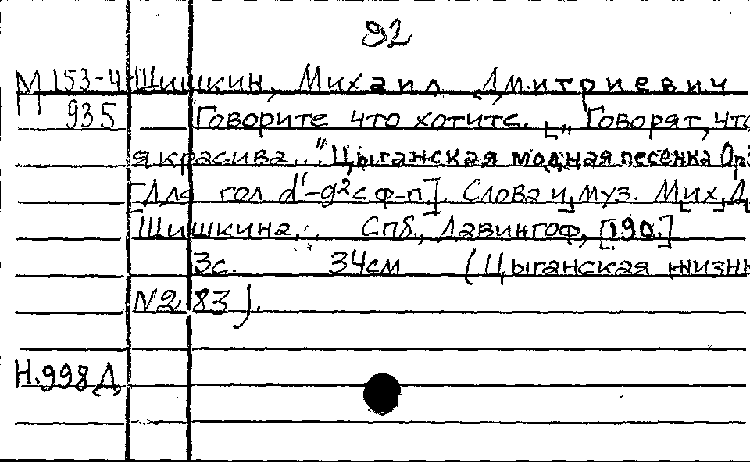 92
М 153-4 Шишкин, Михаил Дмитриевич
935 Говорите что хотите. [„Говорят, что
я красива..." Цыганская модная песенка Ор3
[Для гол d'-g² с ф-п]. Слова и муз. Мих. Д.
Шишкина. Спб., Лавингоф, [190.]
3с. 34см (Цыганская жизнь
N283).
Н.998Д